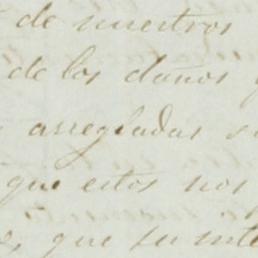 de nuestros
de los daños
arregladas
que estos nos
que su inte